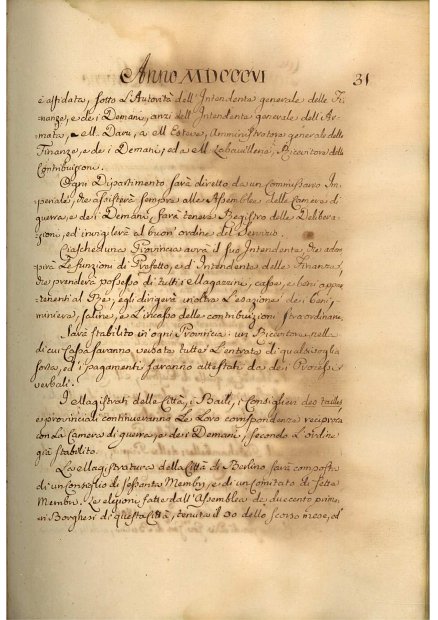 Anno MDCCCVI 31
è affidata, sotto L'Autorità dell'Intendente generale delle Fi-
nanze, e de i Demani, anzi dell'Intendente generale dell'Ar-
mata, M. Daru, a M. Esteve, Amministratore generale delle
Finanze, e de i Demani, ed a M. Labouillerie, Ricevitore delle
Contribuzioni.
Ogni Dipartimento sarà diretto da un Commissario Im-
periale, che assisterà sempre alle Assemblee delle Camere di
guerra, e de i Demani, farà tenere Registro delle Delibera-
zioni, ed invigilerà al buon'ordine del Servizio.
Ciascheduna Provincia avrà il suo Intendente, che adem-
pirà Le funzioni di Prefetto, e d'Intendente delle Finanze,
che prenderà possesso di tutti i Magazzini, casse, e beni appar-
tenenti al Rè, egli dirigerà inoltre L'esazione de i beni,
miniere, saline, e L'incasso delle contribuzioni straordinarie.
Sarà stabilito in ogni Provincia un Ricevitore, nella
di cui Cassa saranno versate tutte L'entrate di qualsivoglia
sorta, ed i pagamenti saranno attestati da de i Processi
verbali.
I Magistrati delle Città, i Baili, i Consiglieri des tailles,
e provinciali continueranno Le Loro corrispondenze reciproche
con La Camera di guerra, e de i Demani, secondo L'ordine
già stabilito.
La Magistratura della Città di Berlino sarà composta
di un Consiglio di sessanta Membri, e di un Comitato di sette
Membri. Le elezioni fatte dall'Assemblea di duecento primi
ri Borghesi di questa Città, tenuta il 30 dello scorso mese, ed